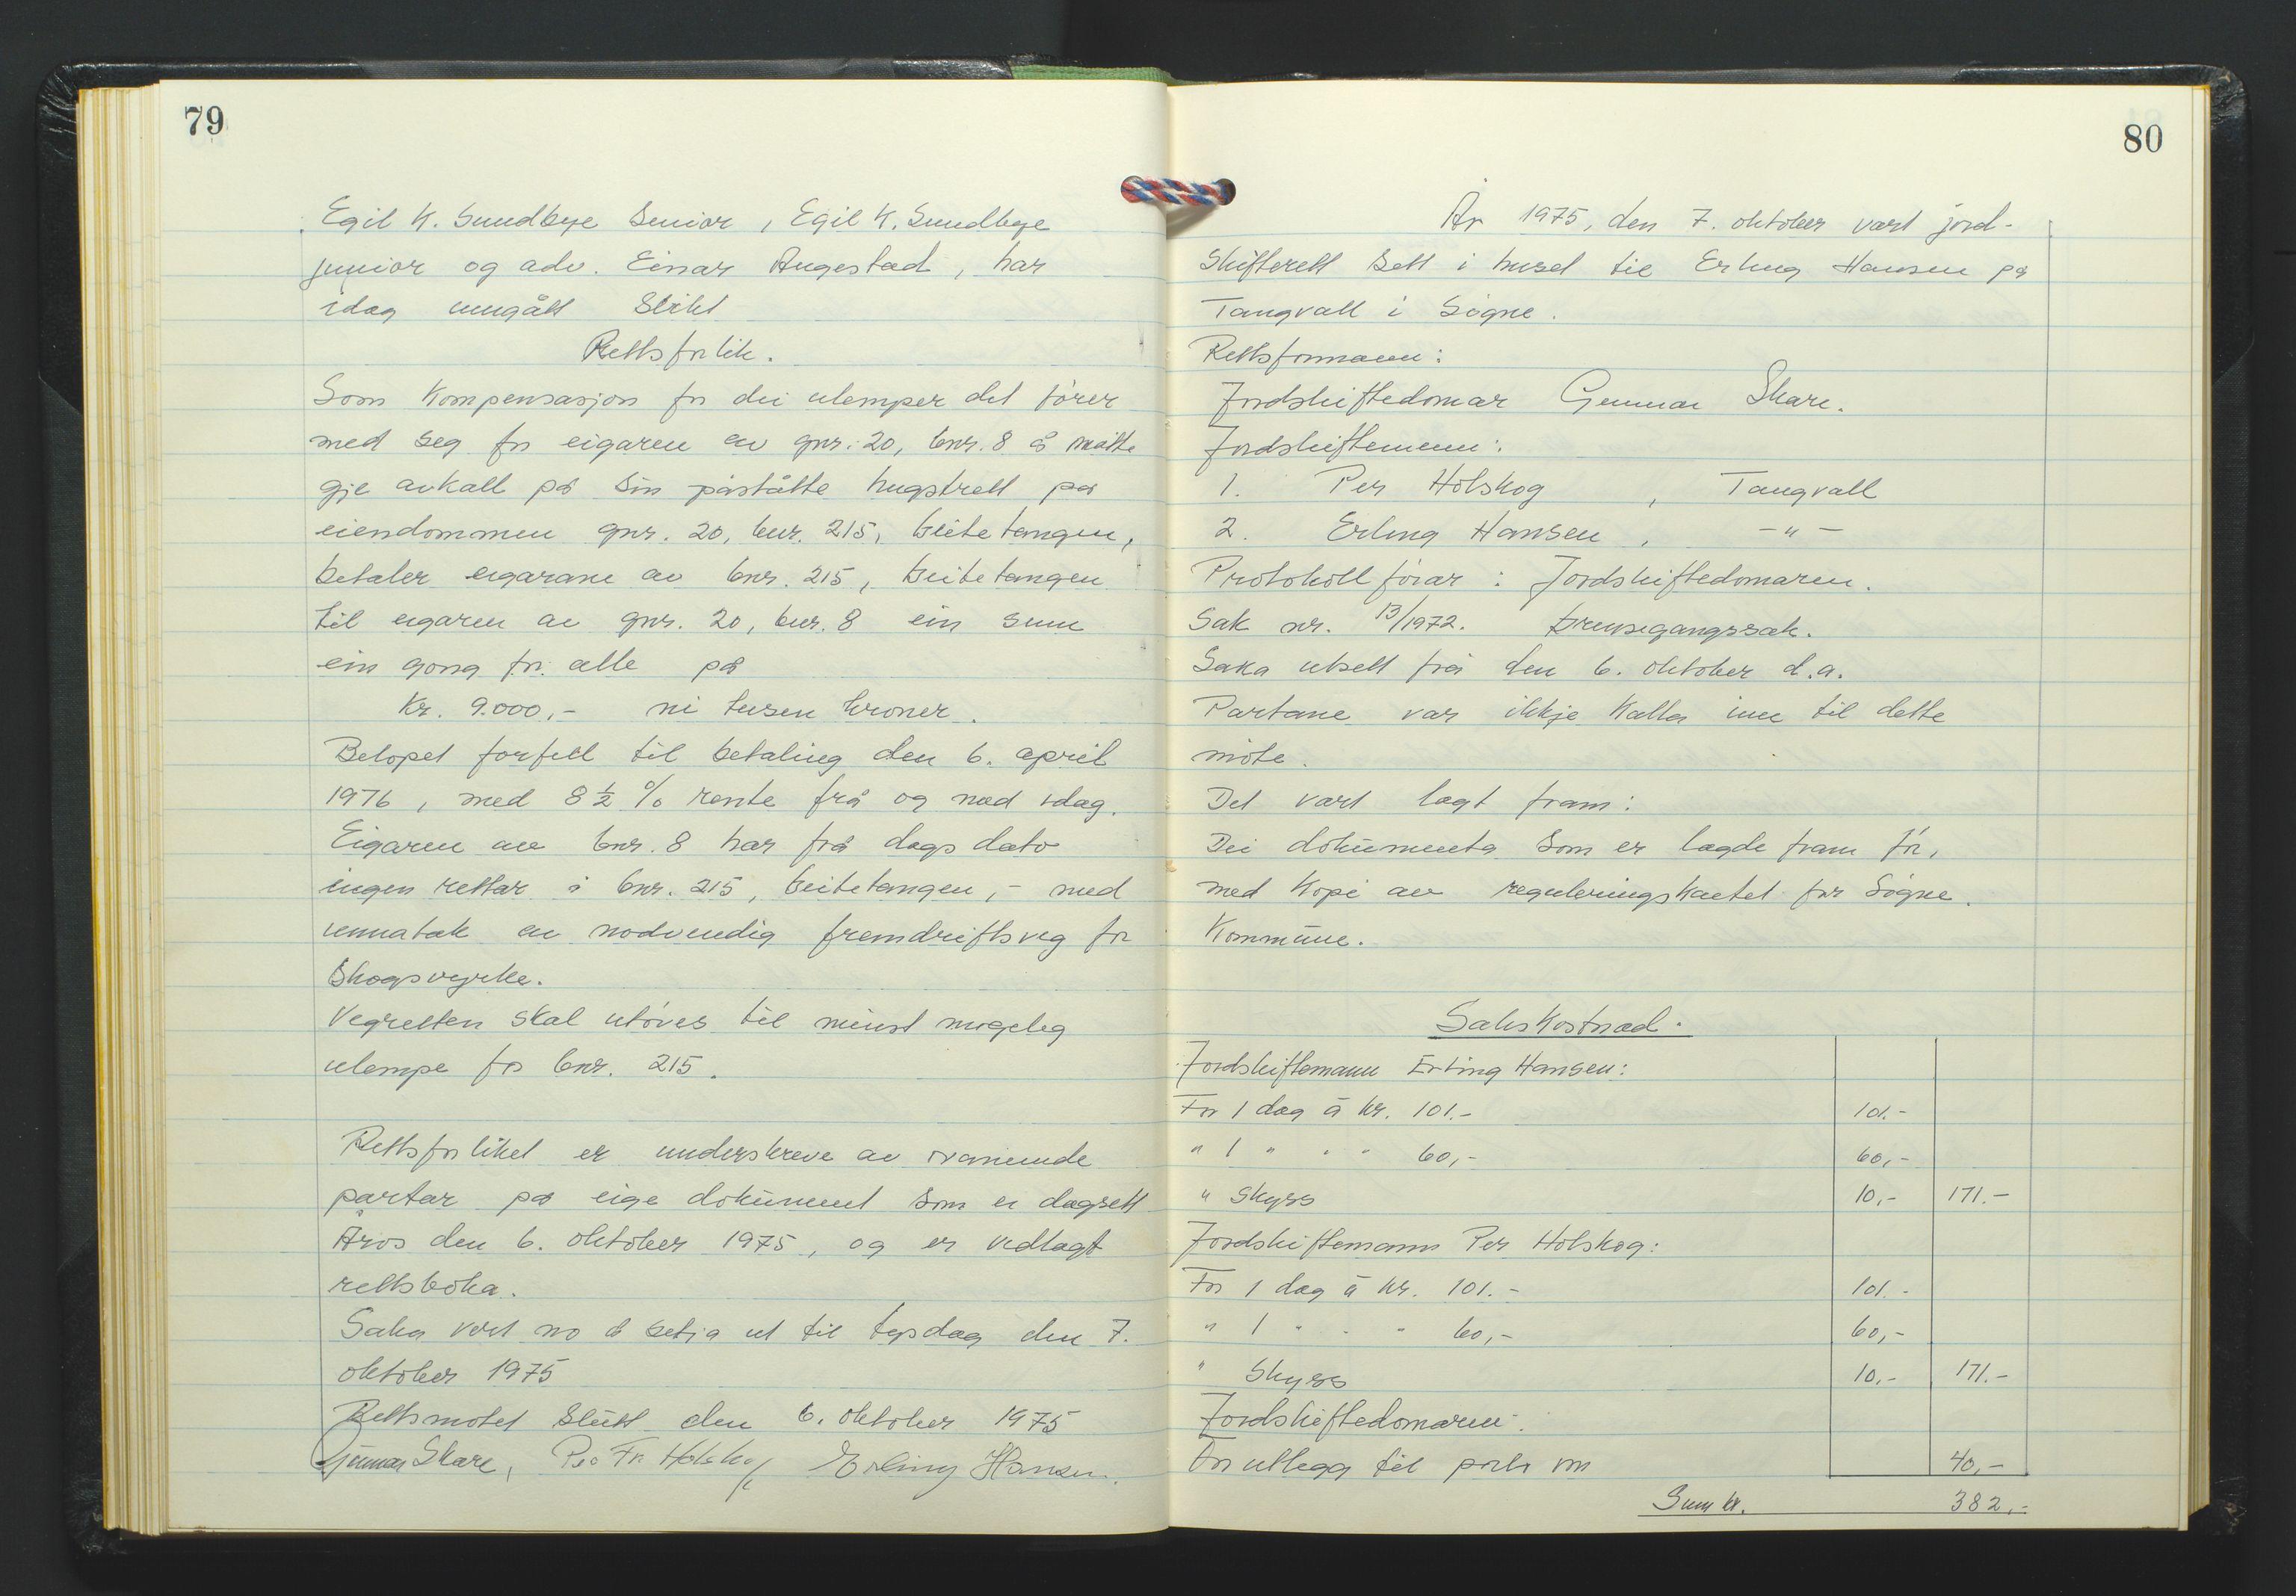 79
Egil K. Sundbye Senior, Egil K. Sundbye
junior og adv. Einar Augestad, har
idag inngått slikt
Rettsforlik.
Som kompensasjon for dei ulemper det fører
med seg for eigaren av gnr. 20, bnr. 8 å måtte
gje avkall på sin påståtte hugstrett på
eiendommen gnr. 20, bnr. 215, Geitetangen,
betaler eigarane av bnr. 215, Geitetangen
til eigaren av gnr. 20, bnr. 8 ein sum
ein gong for alle på
Kr. 9.000,- ni tusen kroner.
Beløpet forfell til betaling den 6. april
1976, med 8 ½ % rente frå og med idag.
Eigaren av bnr. 8 har frå dags dato
ingen rettar i bnr. 215, Geitetangen, - med
unnatak av nødvendig fremdriftsveg for
skogsvyrke.
Vegretten skal utøves til minst mogeleg
ulempe for bnr. 215.
Rettsforliket er underskreve av ovanemnde
partar på eige dokument som er dagsett
Åros den 6. oktober 1975, og er vedlagt
rettsboka.
Saka vert no å setja ut til tysdag den 7.
oktober 1975
Rettsmøtet slutt den 6. oktober 1975
Gunnar Skare, Per Fr. Holskog Erling Hansen.
80
År 1975, den 7. oktober vart jord-
skifterett sett i huset til Erling Hansen på
Tangvall i Søgne.
Rettsformann:
Jordskiftedomar Gunnar Skare.
Jordskiftemenn:
1. Per Holskog, Tangvall
2. Erling Hansen, -"-
Protokollførar: Jordskiftedomaren.
Sak nr. 13/1972. Grensegangssak.
Saka utsett frå den 6. oktober d.a.
Partane var ikkje kalla inn til dette
møte.
Det vart lagt fram:
Dei dokumenta som er lagde fram før,
med kopi av reguleringskartet for Søgne
Kommune.
Sakskostnad.
Jordskiftemann Erling Hansen:
For 1 dag á kr. 101.- 101.-
" 1 " " " 60,- 60,-
" Skyss 10,- 171.-
Jordskiftemann Per Holskog:
For 1 dag á kr. 101.- 101.-
" 1 " " " 60,- 60,-
" Skyss 10,- 171.-
Jordskiftedomaren:
For utlegg til porto 40,-
Sum kr. 382,-